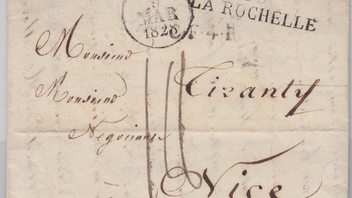 MAR
1828
LA ROCHELLE
C.F.4.R.
Monsieur
Monsieur Tiranty
Négociant
Nice
à